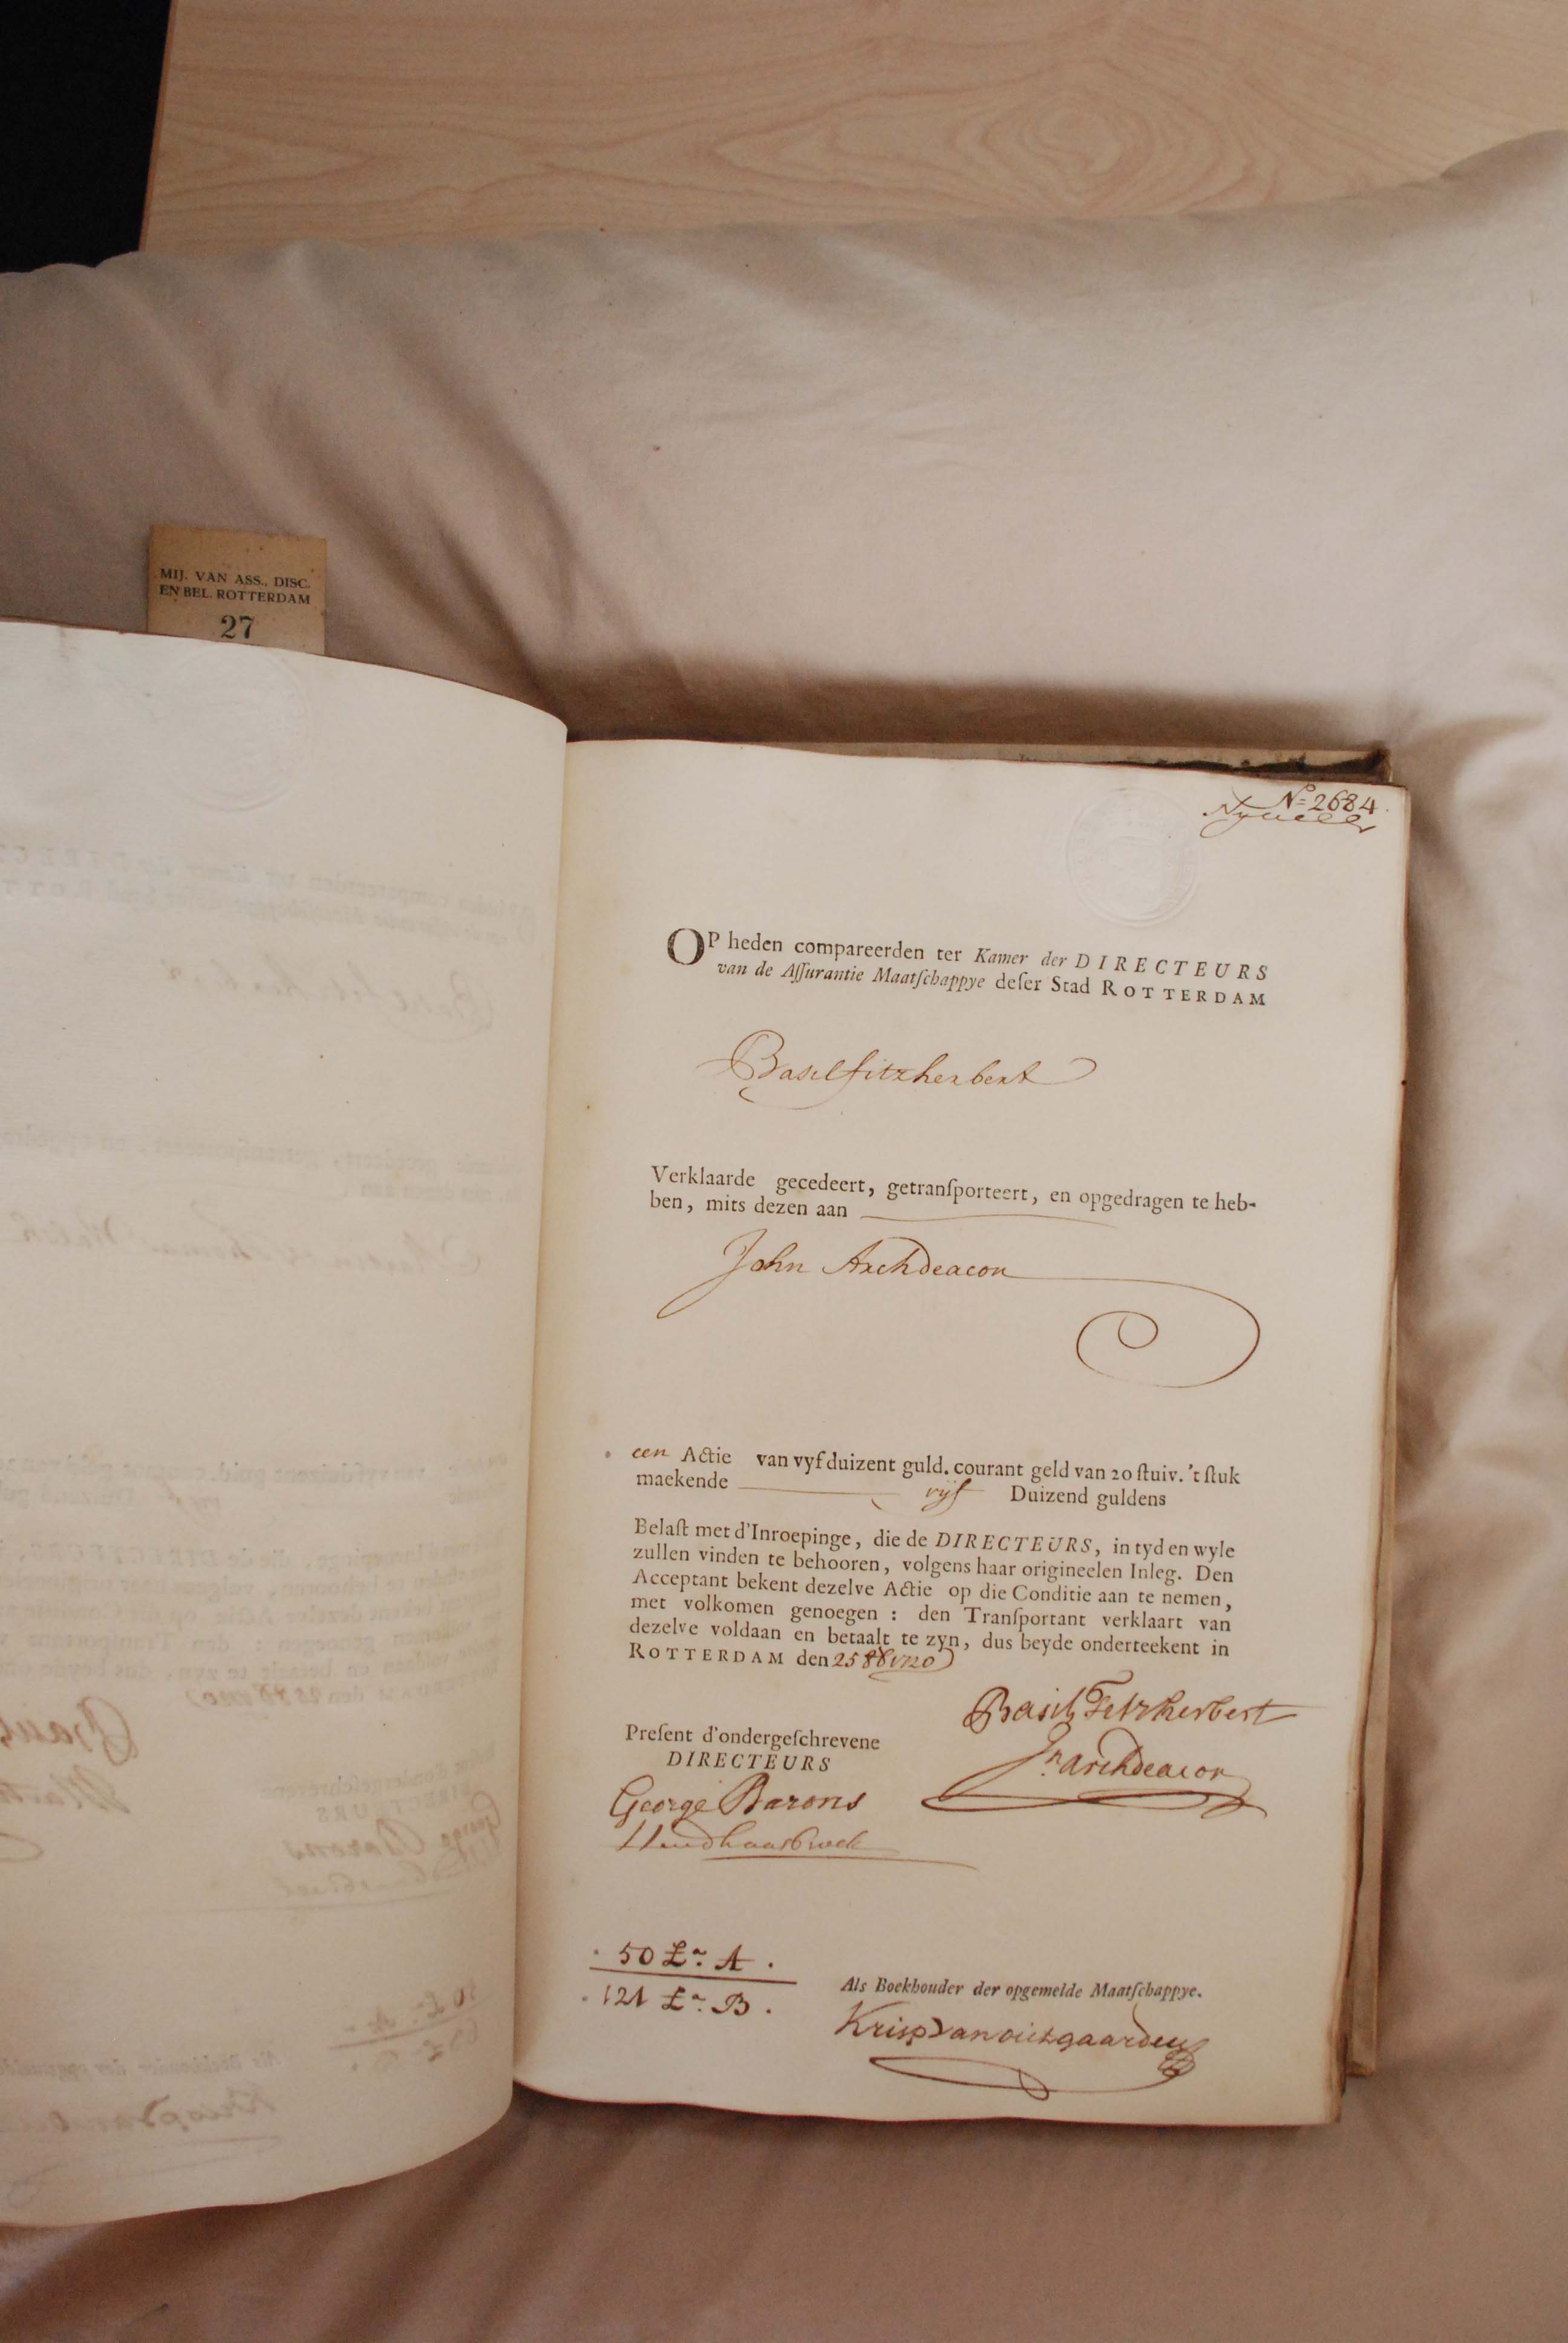 MIJ. VAN ASS., DISC.
EN BEL. ROTTERDAM
27
No 2684.
OP heden compareerden ter Kamer der DIRECTEURS
van de Aſſurantie Maatſchappye deſer Stad ROTTERDAM
Basil fitzherbert
Verklaarde gecedeert, getranſporteert, en opgedragen te heb-
ben, mits dezen aan
John Archdeacon
een Actie van vyfduizent guld. courant geld van 20 ſtuiv. 't ſtuk
maekende vijf Duizend guldens
Belaſt met d'Inroepinge, die de DIRECTEURS, in tyd en wyle
zullen vinden te behooren, volgens haar origineelen Inleg. Den
Acceptant bekent dezelve Actie op die Conditie aan te nemen,
met volkomen genoegen : den Tranſportant verklaart van
dezelve voldaan en betaalt te zyn, dus beyde onderteekent in
ROTTERDAM den 25 1720
Basil Fitzherbert
Preſent d'ondergeſchrevene
DIRECTEURS
Jn Archdeacon
George Barons
50 Lra A.
121 Lra B.
Als Boekhouder der opgemelde Maatſchappye.